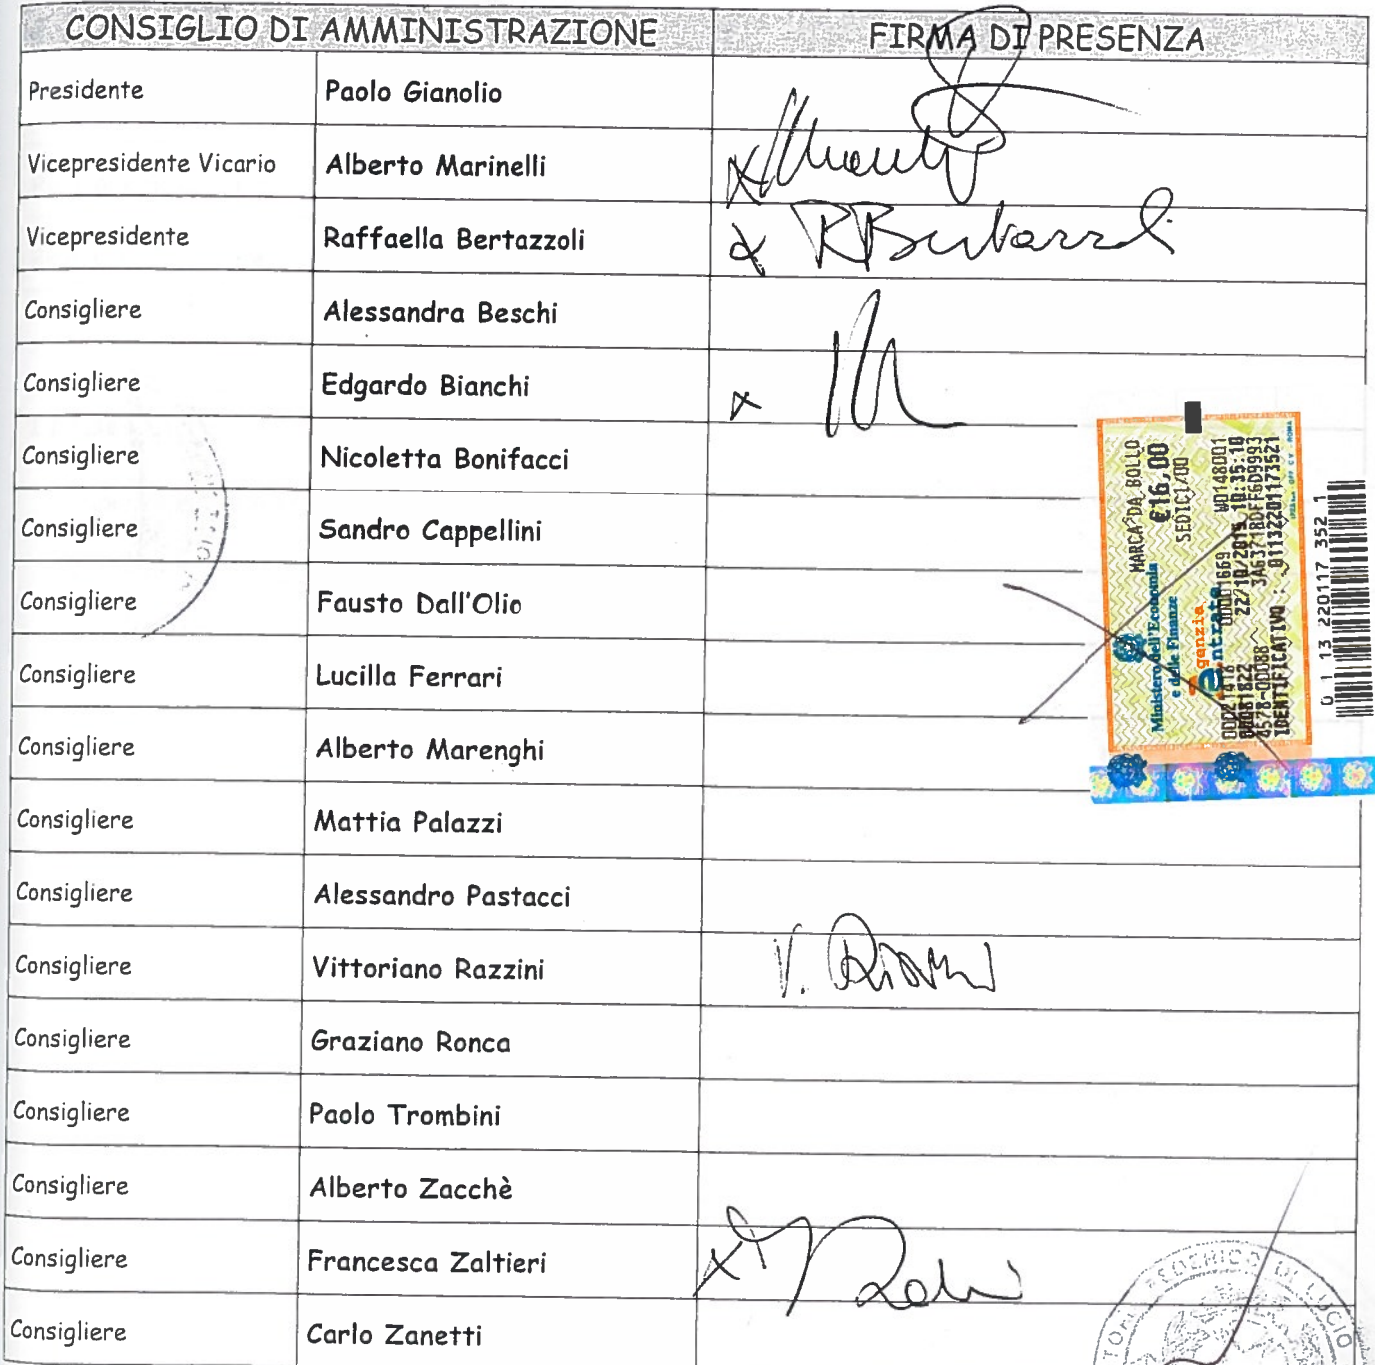 CONSIGLIO DI AMMINISTRAZIONE FIRMA DI PRESENZA
Presidente Paolo Gianolio
Vicepresidente Vicario Alberto Marinelli
Vicepresidente Raffaella Bertazzoli x RBertazzoli
Consigliere Alessandra Beschi
Consigliere Edgardo Bianchi x
Consigliere Nicoletta Bonifacci
Consigliere Sandro Cappellini
Consigliere Fausto Dall'Olio
Consigliere Lucilla Ferrari
Consigliere Alberto Marenghi
Consigliere Mattia Palazzi
Consigliere Alessandro Pastacci
Consigliere Vittoriano Razzini V.
Consigliere Graziano Ronca
Consigliere Paolo Trombini
Consigliere Alberto Zacchè
Consigliere Francesca Zaltieri x
Consigliere Carlo Zanetti
Ministero dell'Economia
e delle Finanze
MARCA DA BOLLO
€16,00
SEDICI/00
agenzia
entrate
00021418 00001669 WD148001
00081822 22/10/2015 10:35:10
4578-00088 3A6371BDFF6D9993
IDENTIFICATIVO : 01132201173521
0 1 13 220117 352 1
FEDERICO DI LUCIO